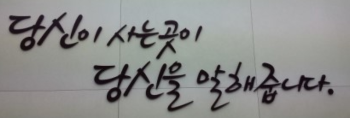 당신이 사는 곳이
당신을 말해줍니다.